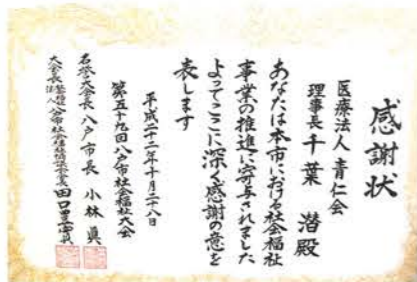 感謝状
医療法人 青仁会
理事長 千葉 潜 殿
あなたは本市における社会福祉
事業の推進に寄与されました
よってここに深く感謝の意を
表します
平成二十二年十月二十八日
第五十九回八戸市社会福祉大会
名誉大会長 八戸市長 小林 眞
大会長 八戸市社会福祉協議会会長 田口豊實